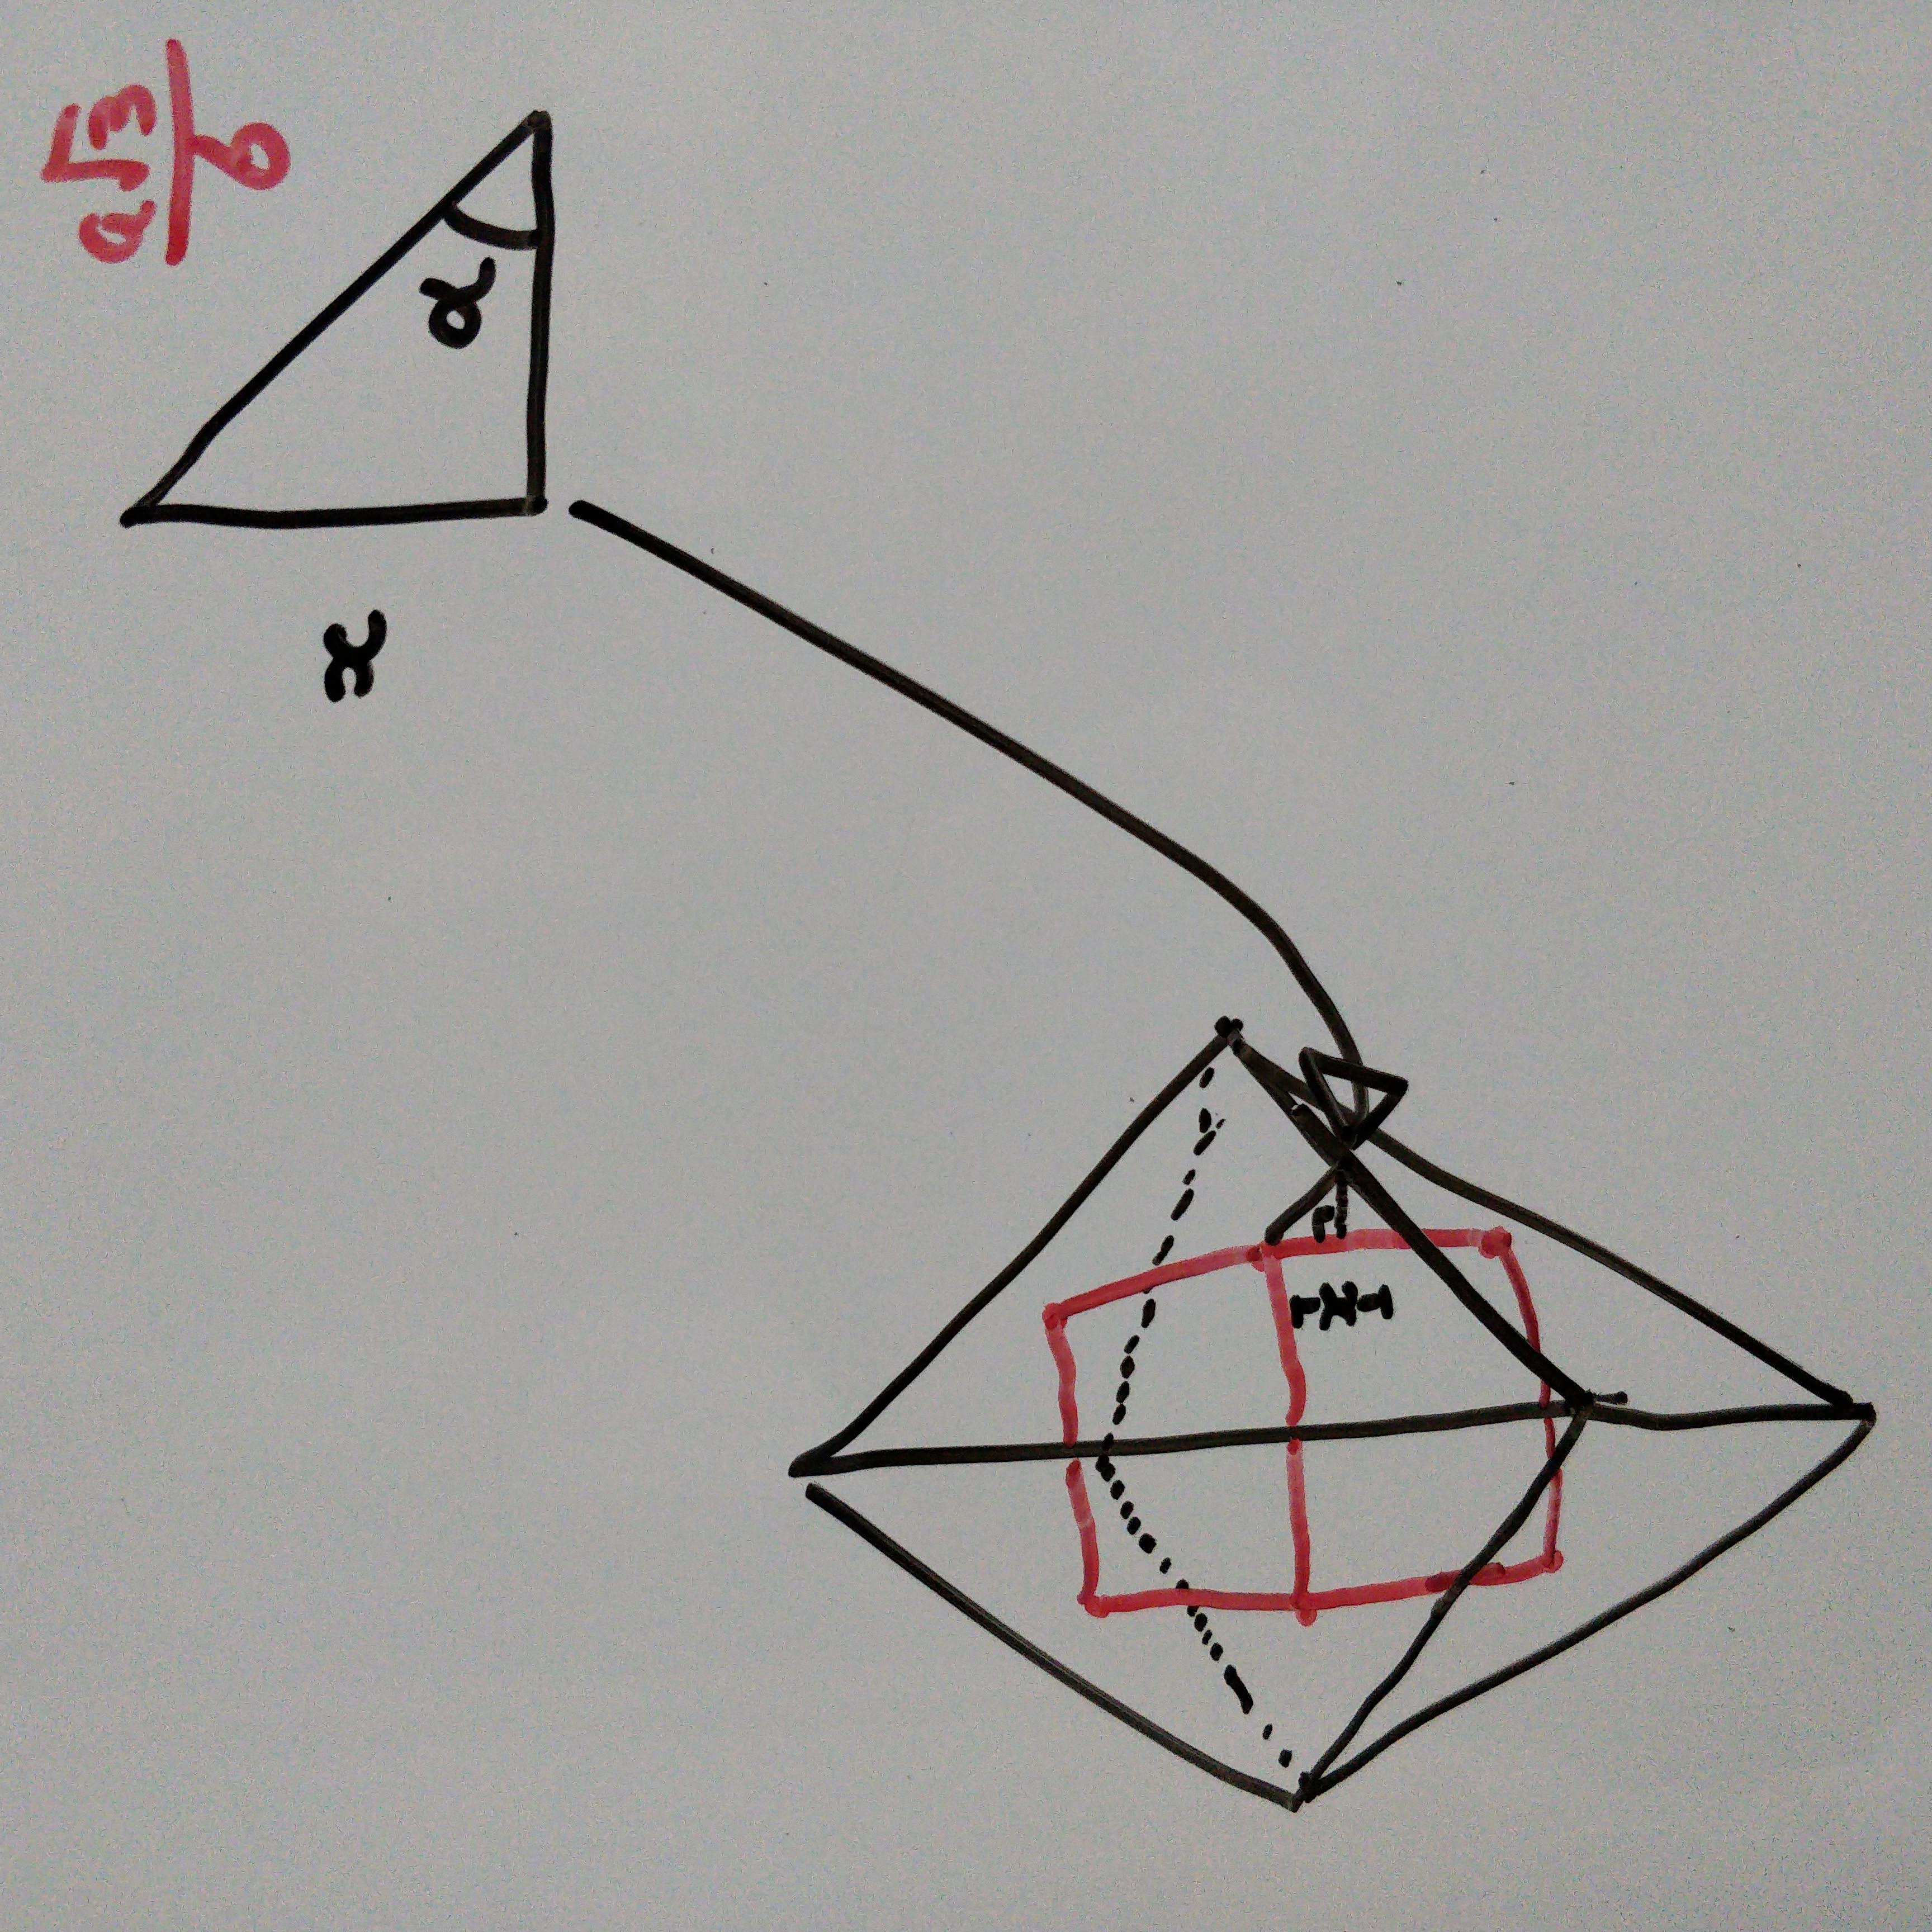 a√3
6
x
α
x